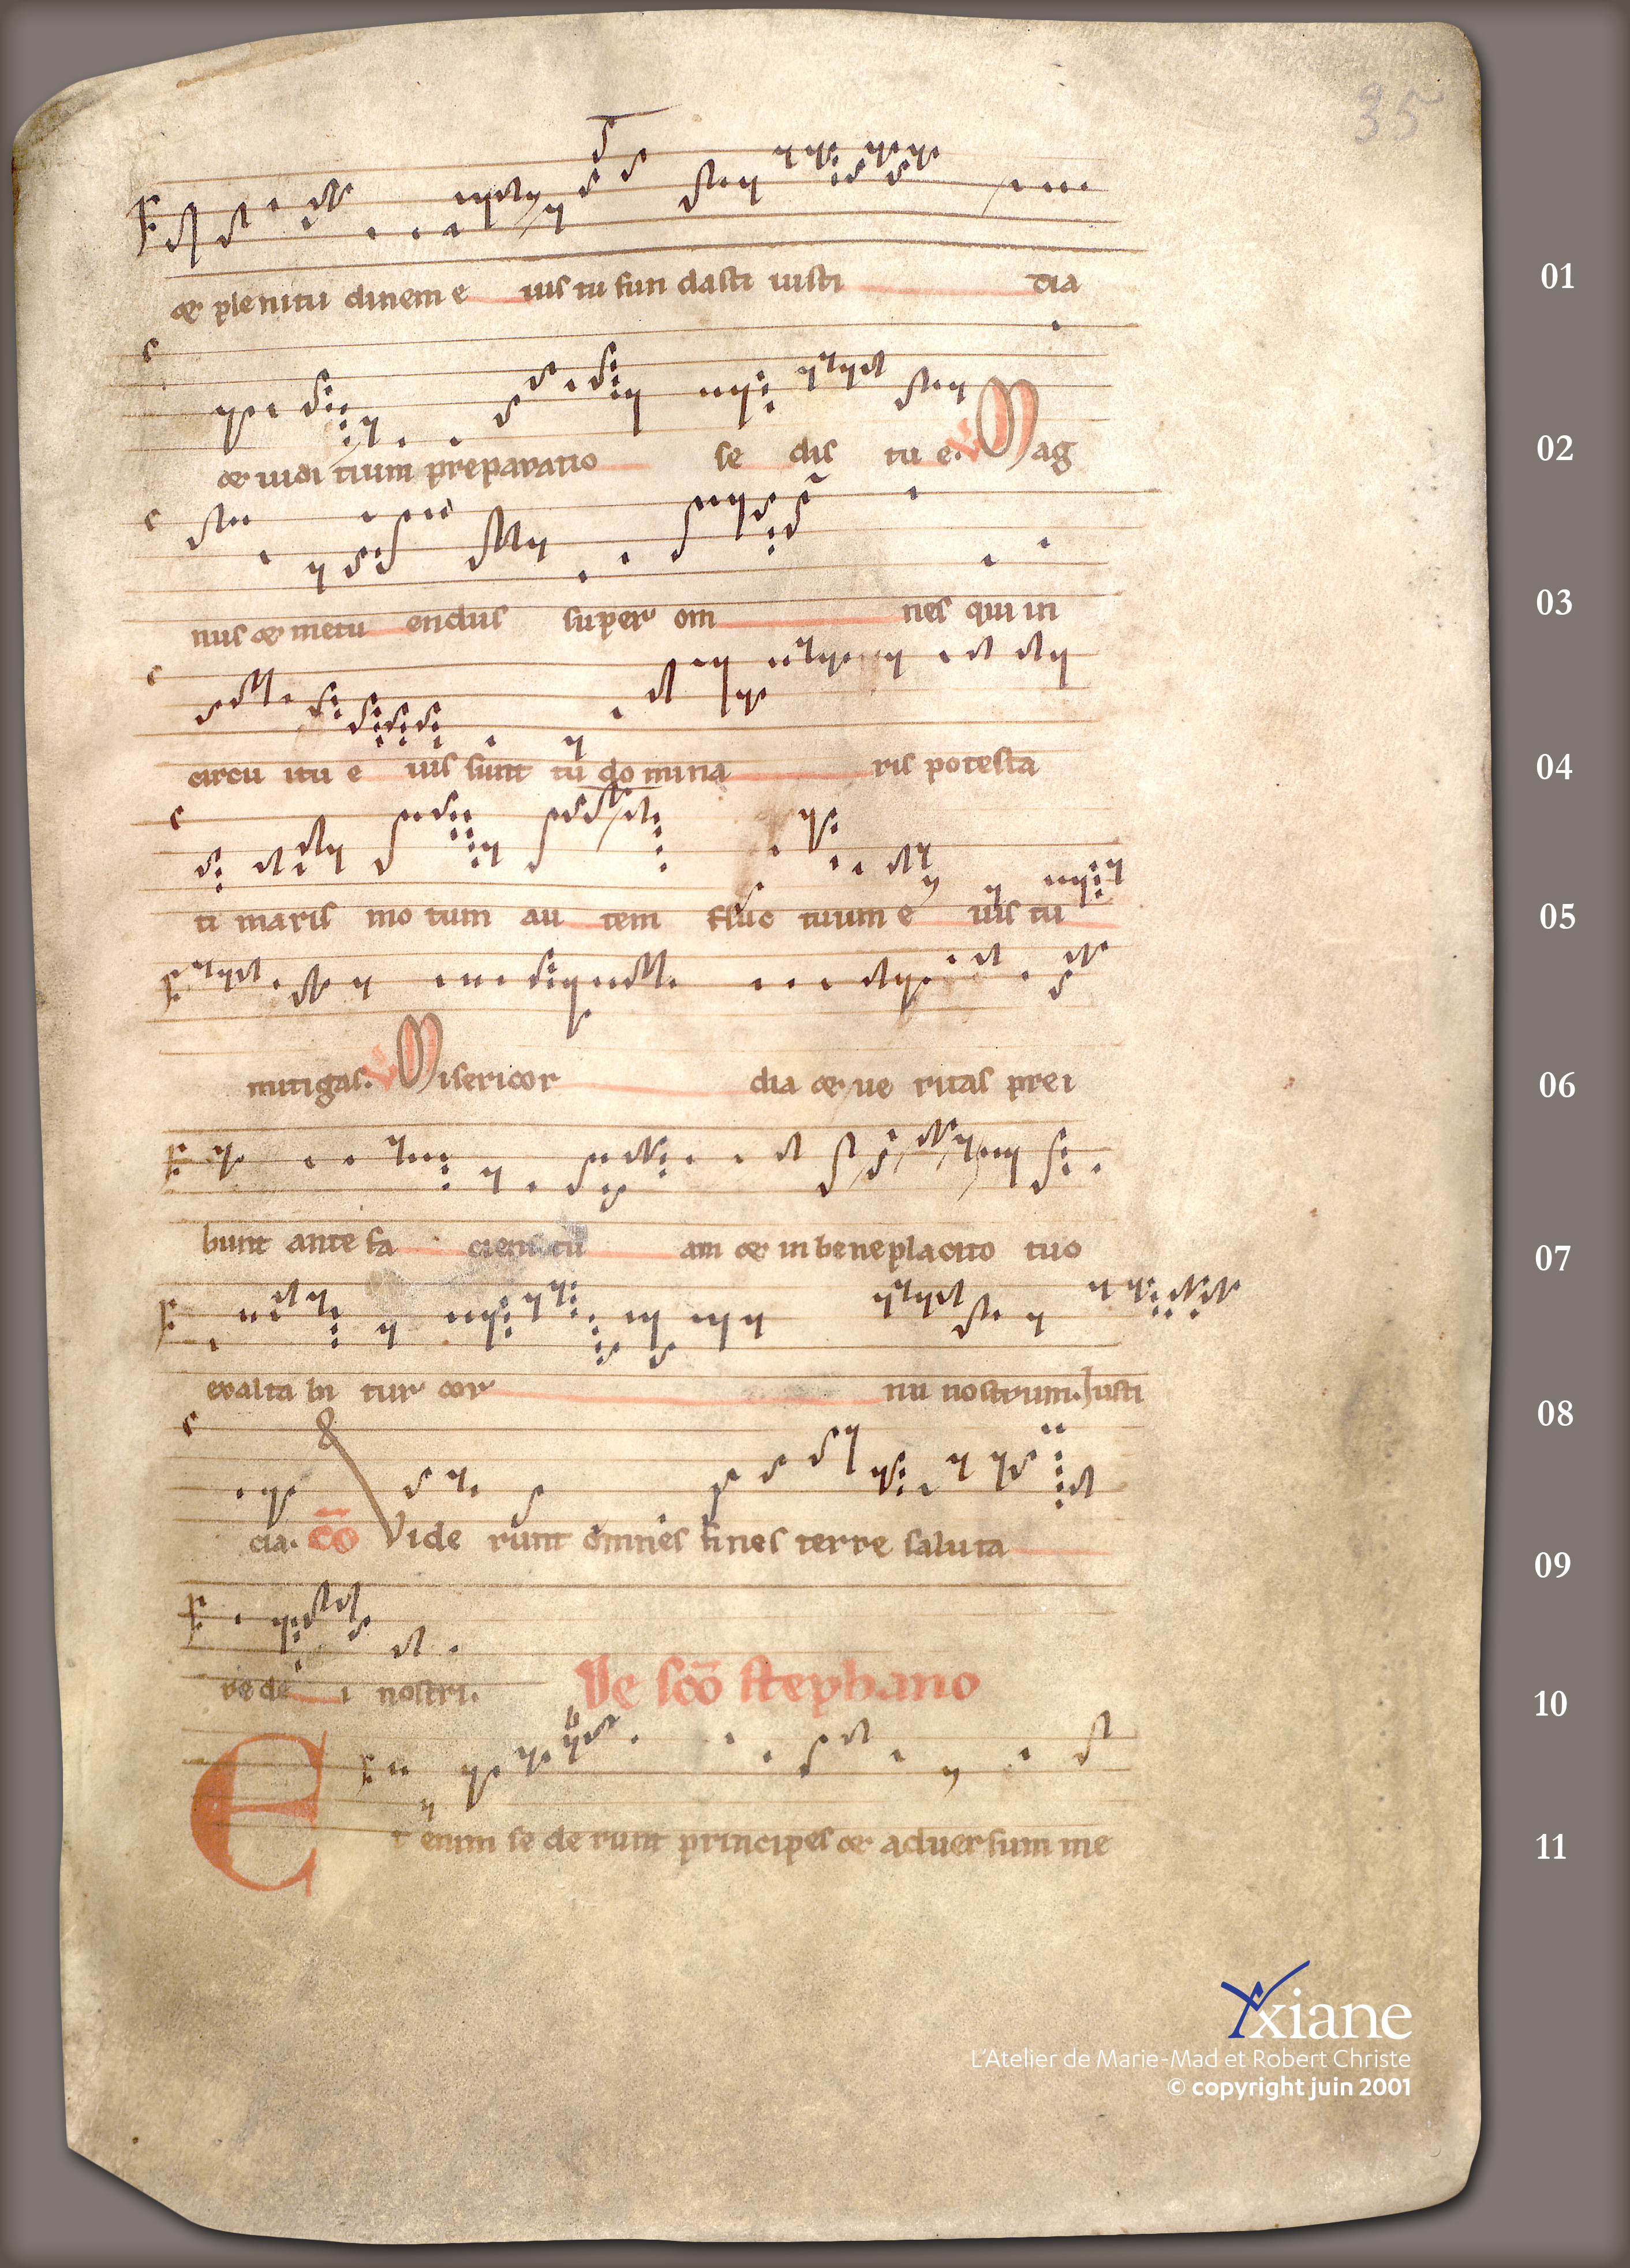 35
& plenitu dinem e ius tu fun dasti iusti cia
01
& iudi tium preparatio se dis tu e. V Mag
02
nus & metu endus super om nes qui in
03
circu itu e ius sunt tu do mina ris potesta
04
ti maris mo tum au tem fluc tuum e ius tu
05
mitigas. V Misericor dia & ue ritas prei
06
bunt ante fa ciem tu am & in beneplacito tuo
07
exalta bi tur cor nu nostrum. Iusti
08
cia. cō Vide runt omnes fines terre saluta
09
re de i nostri. De scō stephano
10
Et enim se de runt principes & aduersum me
11
Yxiane
L'Atelier de Marie-Mad et Robert Christe
© copyright juin 2001